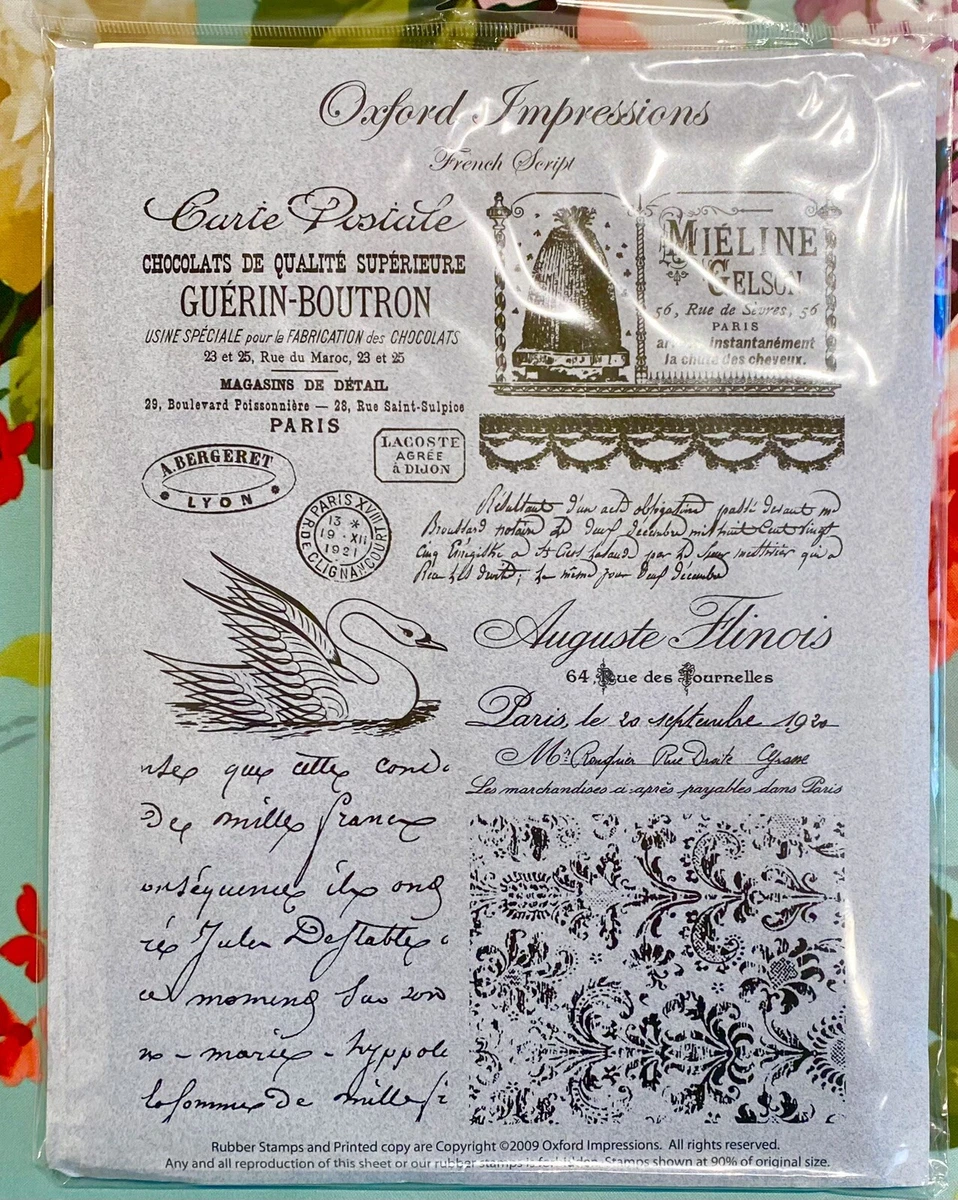 Oxford Impressions
French Script
Carte Postale
CHOCOLATS DE QUALITÉ SUPÉRIEURE
GUÉRIN-BOUTRON
USINE SPÉCIALE pour la FABRICATION des CHOCOLATS
23 et 25, Rue du Maroc, 23 et 25
MAGASINS DE DÉTAIL
29, Boulevard Poissonnière — 28, Rue Saint-Sulpice
PARIS
MIÉLINE
GELSON
56, Rue de Sèvres, 56
PARIS
instantanément
la chute des cheveux.
A. BERGERET
LYON
LACOSTE
AGRÉE
à DIJON
PARIS XVIII
R. DE CLIGNANCOURT
13 *
19 · XII
1921
Résultant d'un acte obligation passé devant
notaire Décembre mil huit Cent vingt
cinq par qui a
le même jour Décembre
Auguste Flinois
64 Rue des Tournelles
Paris, le 20 septembre 1920
Mr Rue Droite Grasse
Les marchandises ci-après payables dans Paris
que cette
De mille francs
onséquence ils ong
Jules
ce moment
marie - hyppol
la somme De mille
Rubber Stamps and Printed copy are Copyright ©2009 Oxford Impressions. All rights reserved.
Any and all reproduction of this sheet or our rubber stamps is forbidden. Stamps shown at 90% of original size.